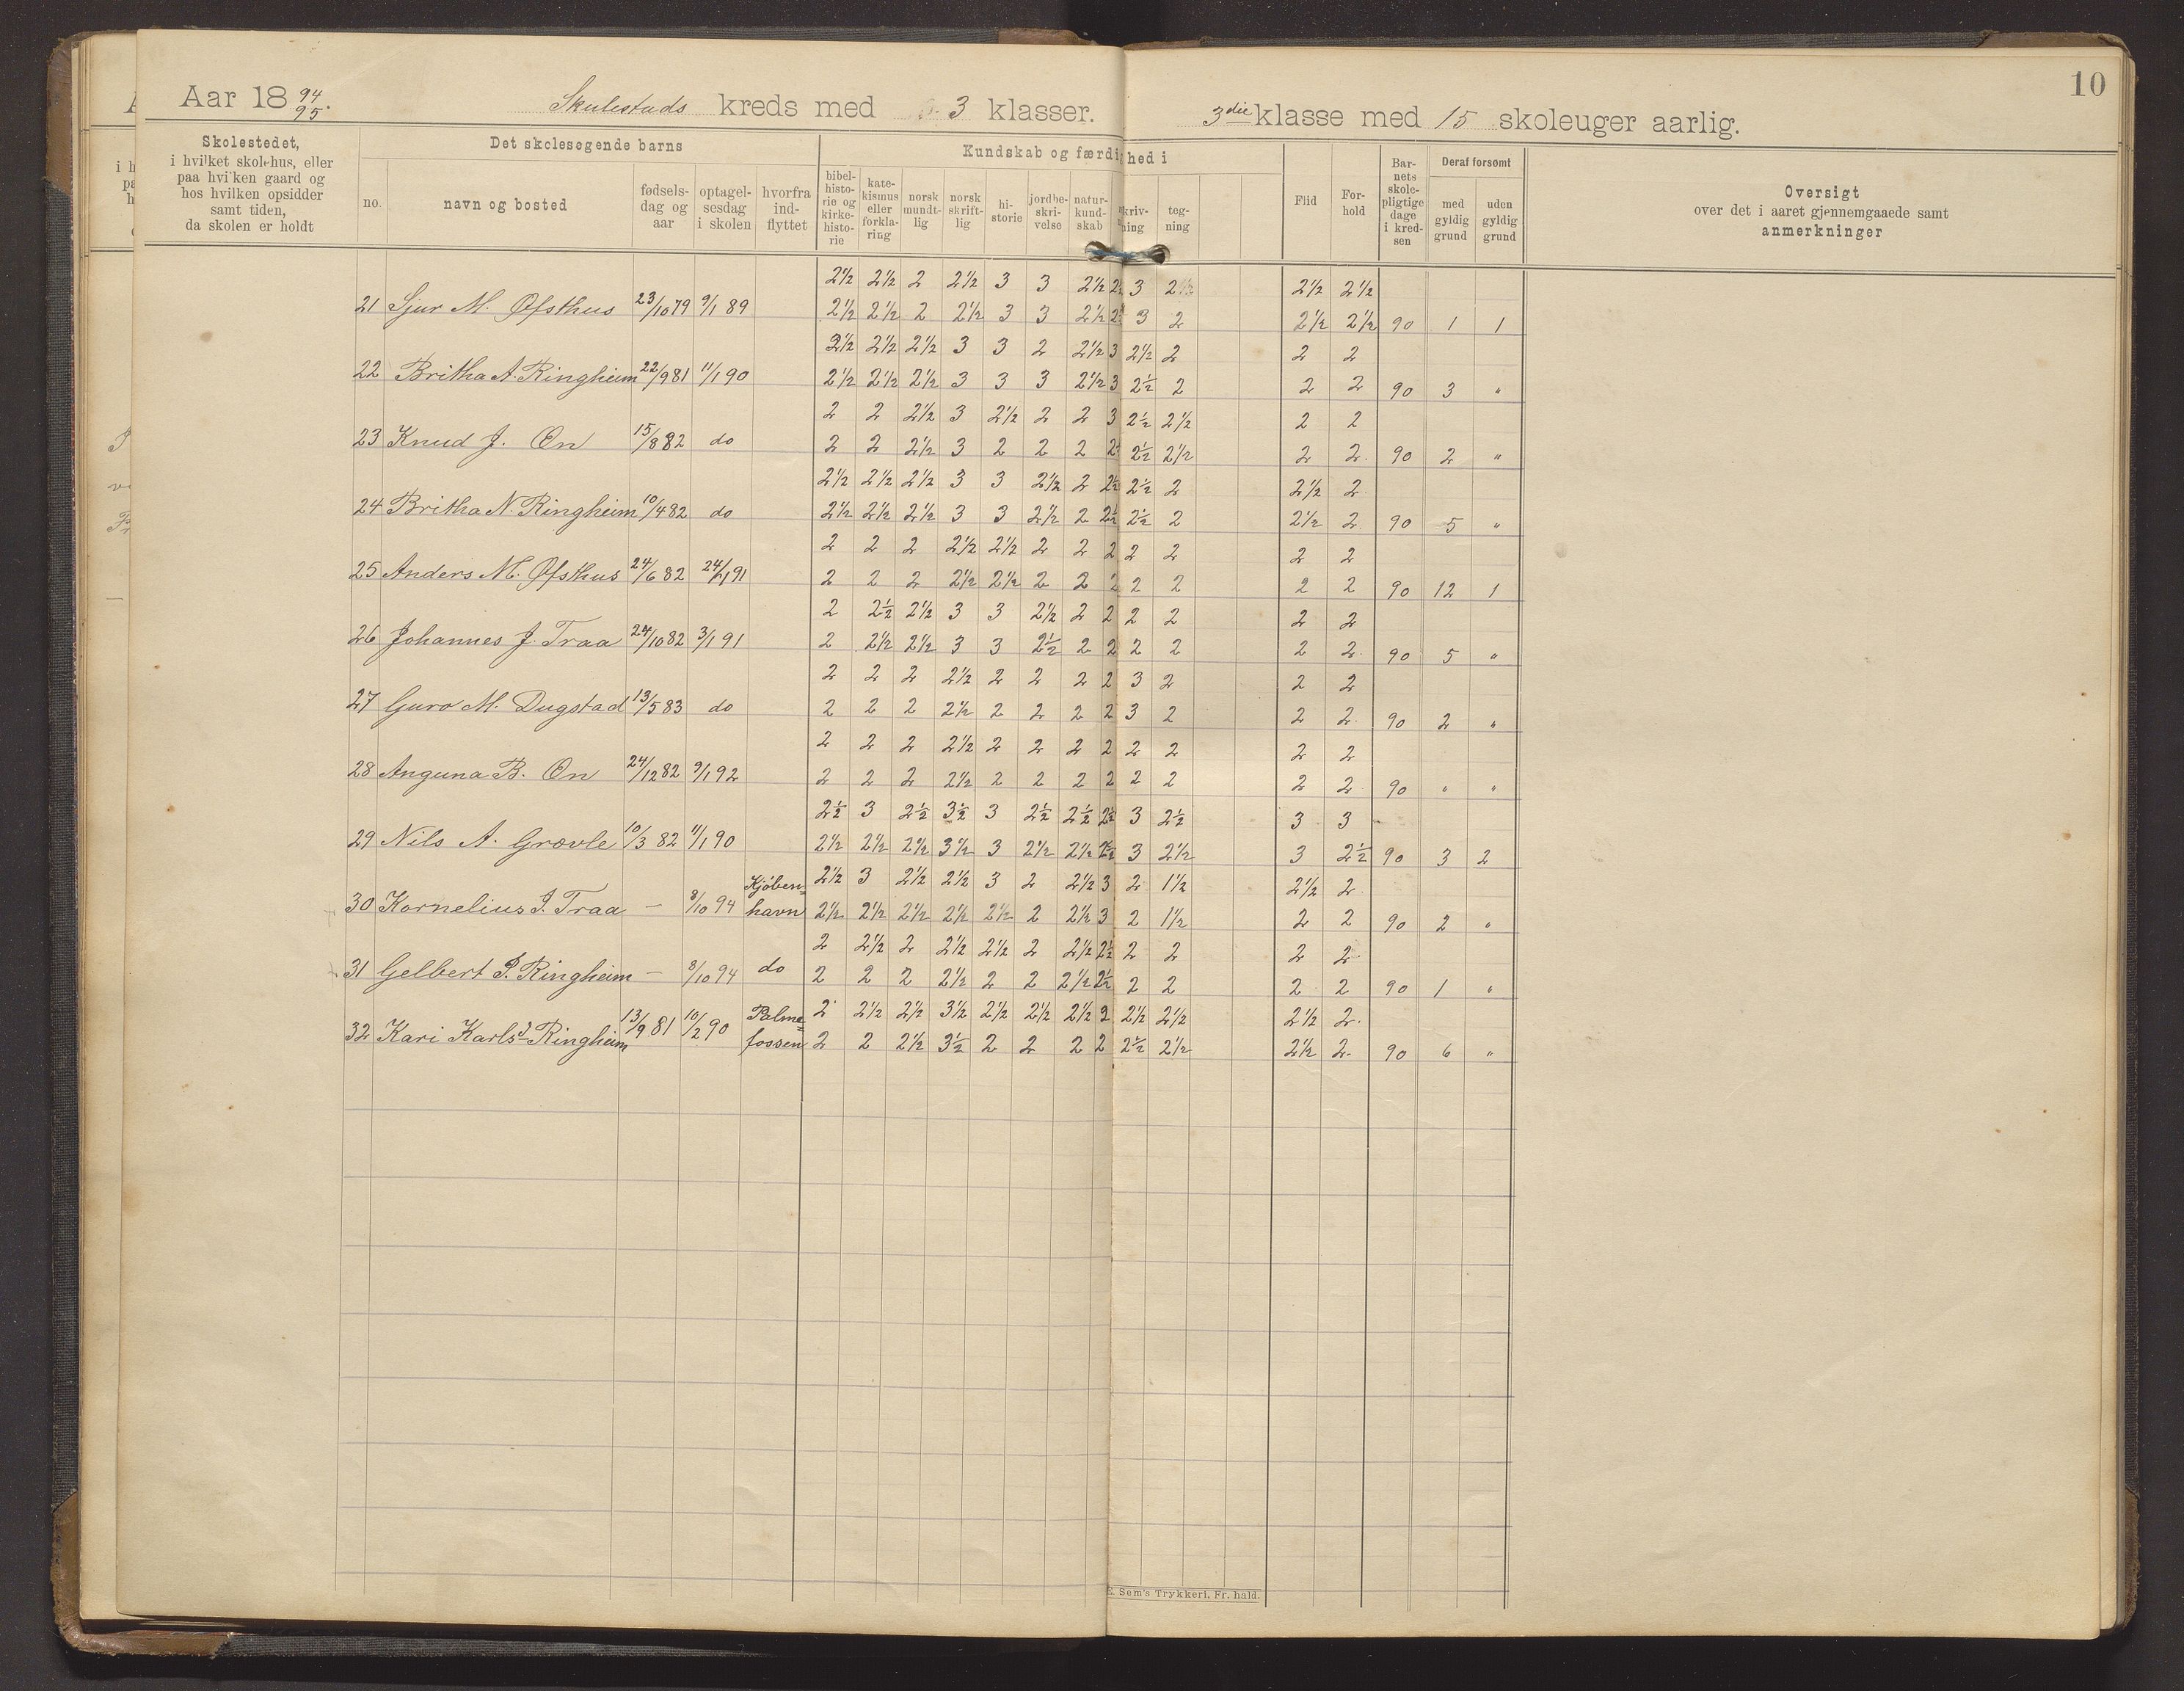 10
Aar 18 94/95. Skulestads kreds med 3 klasser. 3die klasse med 15 skoleuger aarlig.
Skolestedet,
i hvilket skolehus, eller
paa hvilken gaard og
hos hvilken opsidder
samt tiden,
da skolen er holdt
Det skolesøgende barns
no.
navn og bosted
fødsels-
dag og
aar
optagel-
sesdag
i skolen
hvorfra
ind-
flyttet
Kundskab og færdi hed i
bibel-
histo-
rie og
kirke-
histo-
rie
kate-
kismus
eller
forkla-
ring
norsk
mundt-
lig
norsk
skrift-
lig
hi-
storie
jordbe-
skri-
velse
natur-
kund-
skab
skriv-
ning
teg-
ning
Flid
For-
hold
Bar-
nets
skole-
pligtige
dage
i kred-
sen
Deraf forsømt
med
gyldig
grund
uden
gyldig
grund
Oversigt
over det i aaret gjennemgaaede samt
anmerkninger
2½ 2½ 2 2½ 3 3 2½ 2½ 3 2½ 2½ 2½
21 Sjur M. Øfsthus 23/10 79 9/1 89 2½ 2½ 2 2½ 3 3 2½ 2½ 3 2 2½ 2½ 90 1 1
2½ 2½ 2½ 3 3 2 2½ 3 2½ 2 2 2
22 Britha A. Ringheim 22/9 81 11/1 90 2½ 2½ 2½ 3 3 3 2½ 3 2½ 2 2 2 90 3 "
2 2 2½ 3 2½ 2 2 3 2½ 2½ 2 2
23 Knud J. On 15/8 82 do 2 2 2½ 3 2 2 2 2½ 2½ 2½ 2 2. 90 2 "
2½ 2½ 2½ 3 3 2½ 2 2½ 2½ 2 2½ 2
24 Britha N. Ringheim 10/4 82 do 2½ 2½ 2½ 3 3 2½ 2 2½ 2½ 2 2½ 2 90 5 "
2 2 2 2½ 2½ 2 2 2 2 2 2 2
25 Anders M. Øfsthus 24/6 82 24/1 91 2 2 2 2½ 2½ 2 2 2 2 2 2 2 90 12 1
2 2½ 2½ 3 3 2½ 2 2 2 2 2 2
26 Johannes J. Traa 24/10 82 3/1 91 2 2½ 2½ 3 3 2½ 2 2 2 2 2 2. 90 5 "
2 2 2 2½ 2 2 2 2 3 2 2 2
27 Guro M. Dugstad 13/5 83 do 2 2 2 2½ 2 2 2 2 3 2 2 2. 90 2 "
2 2 2 2½ 2 2 2 2 2 2 2 2
28 Anguna B. On 24/12 82 9/1 92 2 2 2 2½ 2 2 2 2 2 2 2 2 90 " "
2½ 3 2½ 3½ 3 2½ 2½ 2½ 3 2½ 3 3
29 Nils A. Grovle 10/3 82 11/1 90 2½ 2½ 2½ 3½ 3 2½ 2½ 2½ 3 2½ 3 2½ 90 3 2
Kjöben= 2½ 3 2½ 2½ 3 2 2½ 3 2 1½ 2½ 2.
30 Kornelius J. Traa — 8/10 94 havn 2½ 2½ 2½ 2½ 2½ 2 2½ 3 2 1½ 2 2 90 2 "
2 2½ 2 2½ 2½ 2 2½ 2½ 2 2 2 2
31 Gelbert J. Ringheim — 8/10 94 do 2 2 2 2½ 2 2 2½ 2½ 2 2 2 2 90 1 "
Palme= 2 2½ 2½ 3½ 2½ 2½ 2½ 2 2½ 2½ 2½ 2.
32 Kari Karlsd Ringheim 13/9 81 10/2 90 fossen 2 2 2½ 3½ 2 2 2 2 2½ 2½ 2½ 2. 90 6 "
E. Sem's Trykkeri, Fr. hald.